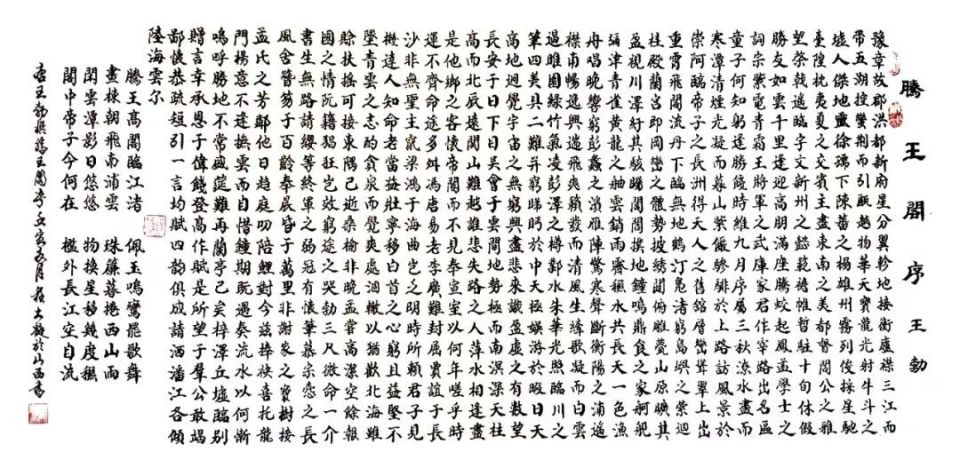 滕王閣序 王勃
豫章故郡洪都新府星分翼軫地接衡廬襟三江而
帶五湖控蠻荆而引甌越物華天寶龍光射牛斗之
墟人傑地靈徐孺下陳蕃之榻雄州霧列俊採星馳
臺隍枕夷夏之交賓主盡東南之美都督閻公之雅
望棨戟遥臨宇文新州之懿範襜帷暫駐十旬休假
勝友如雲千里逢迎高朋滿座騰蛟起鳳孟學士之
詞宗紫電青霜王將軍之武庫家君作宰路出名區
童子何知躬逢勝餞時維九月序屬三秋潦水盡而
寒潭清煙光凝而暮山紫儼驂騑於上路訪風景於
崇阿臨帝子之長洲得天人之舊館層巒聳翠上出
重霄飛閣流丹下臨無地鶴汀鳧渚窮島嶼之縈迴
桂殿蘭宮即岡巒之體勢披綉闥俯雕甍山原曠其
盈視川澤紆其駭矚閭閻撲地鐘鳴鼎食之家舸艦
瀰津青雀黄龍之舳雲銷雨霽穐水共長天一色漁
舟唱晚響窮彭蠡之濱雁陣驚寒聲斷衡陽之浦遥
襟甫暢逸興遄飛爽籟發而清風生纖歌凝而白雲
遏睢園緑竹氣凌彭澤之樽鄴水朱華光照臨川之
筆四美具二難并窮睇眄於中天極娱游於暇日天
高地迥覺宇宙之無窮興盡悲來識盈虛之有數望
長安于日下目吴會于雲間地勢極而南溟深天柱
高而北辰遠關山難越誰悲失路之人萍水相逢盡
是他鄉之客懷帝閽而不見奉宣室以何年嗟乎時
運不齊命途多舛馮唐易老李廣難封屈賈誼于長
沙非無聖主竄梁鴻于海曲豈乏明時所賴君子見
機達人知命老當益壯寧移白首之心窮且益堅不
墜青雲之志酌貪泉而覺爽處涸轍以猶歡北海雖
賒扶摇可接東隅已逝桑榆非晚孟嘗高潔空餘報
國之情阮籍猖狂豈效窮途之哭勃三尺微命一介
書生無路請纓等終軍之弱冠有懷筆慕宗愨之長
風舍簪笏于百齡奉晨昏于萬里非謝家之寶樹接
孟氏之芳鄰他日趨庭叨陪鯉對今兹捧袂喜托龍
門楊意不逢撫雲而自惜鍾期既遇奏流水以何慚
嗚呼勝地不常盛筵難再蘭亭已矣梓澤丘墟臨别
贈言幸承恩于偉餞登高作賦是所望于羣公敢竭
鄙懷恭疏短引一言均賦四韵俱成請洒潘江各傾
陸海雲尔
滕王高閣臨江渚 佩玉鳴鸞罷歌舞
畫棟朝飛南浦雲 珠簾暮捲西山雨
閑雲潭影日悠悠 物换星移幾度穐
閣中帝子今何在 檻外長江空自流